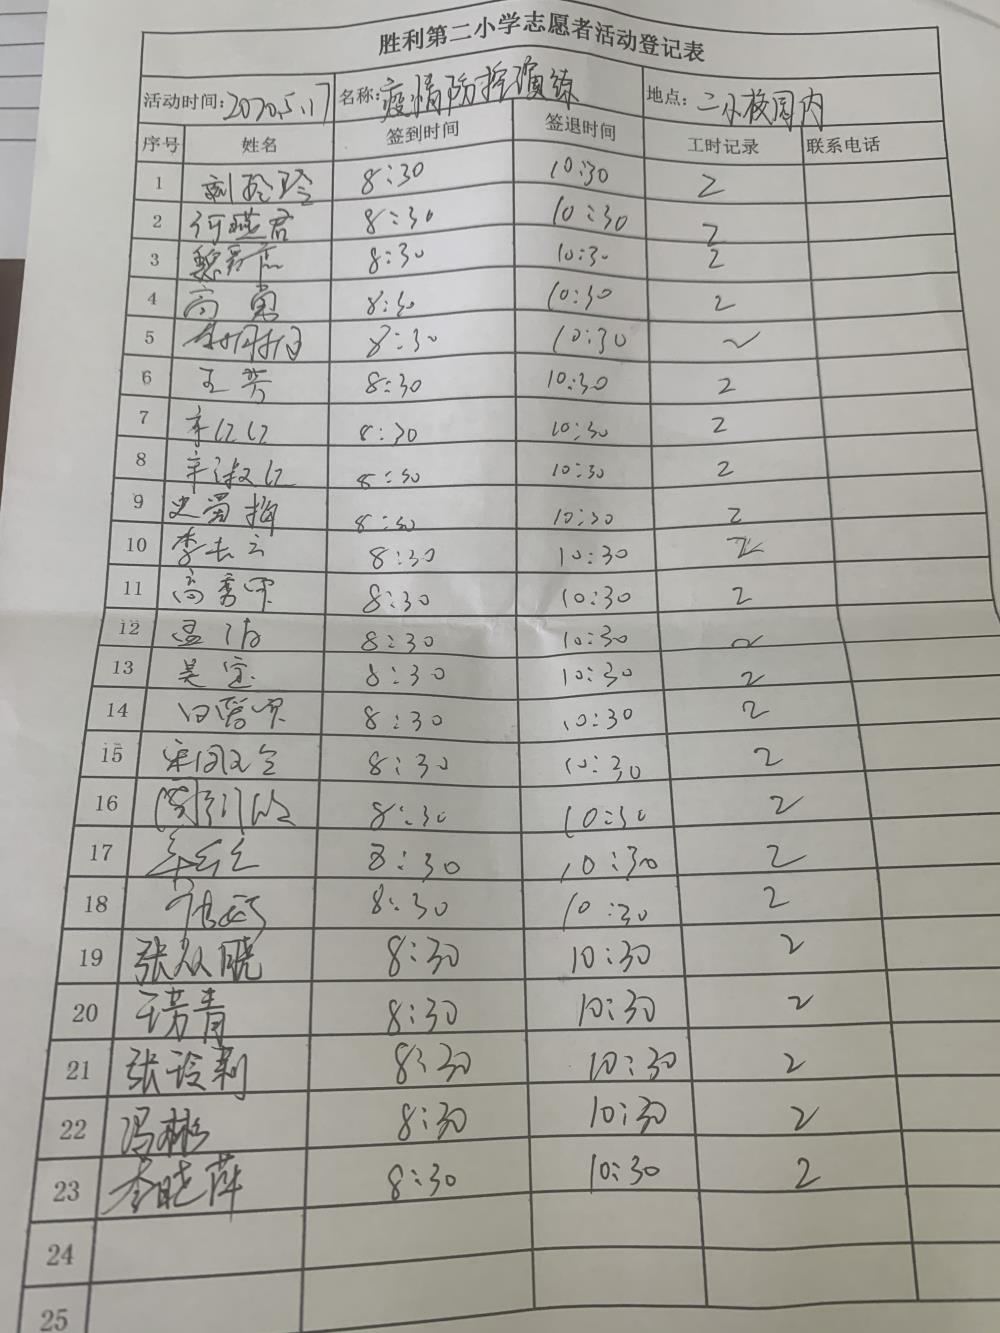 胜利第二小学志愿者活动登记表
活动时间: 2020.5.17 名称: 疫情防控演练 地点: 二小校园内
序号 姓名 签到时间 签退时间 工时记录 联系电话
1 刘玲玲 8:30 10:30 2
2 何燕君 8:30 10:30 2
3 魏 8:30 10:30 2
4 高 8:30 10:30 2
5 8:30 10:30 2
6 王芳 8:30 10:30 2
7 辛红红 8:30 10:30 2
8 辛淑红 8:30 10:30 2
9 史蜀梅 8:30 10:30 2
10 李 8:30 10:30 2
11 高秀 8:30 10:30 2
12 孟 8:30 10:30 2
13 吴宝 8:30 10:30 2
14 8:30 10:30 2
15 8:30 10:30 2
16 8:30 10:30 2
17 8:30 10:30 2
18 8:30 10:30 2
19 张众晓 8:30 10:30 2
20 王芳青 8:30 10:30 2
21 张玲莉 8:30 10:30 2
22 冯彬 8:30 10:30 2
23 李晓萍 8:30 10:30 2
24
25